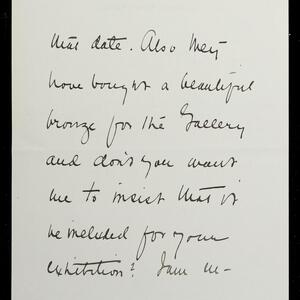 that date. Also they
have bought a beautiful
bronze for the Gallery
and don't you want
me to insist that it
be included for your
exhibition? I am in-